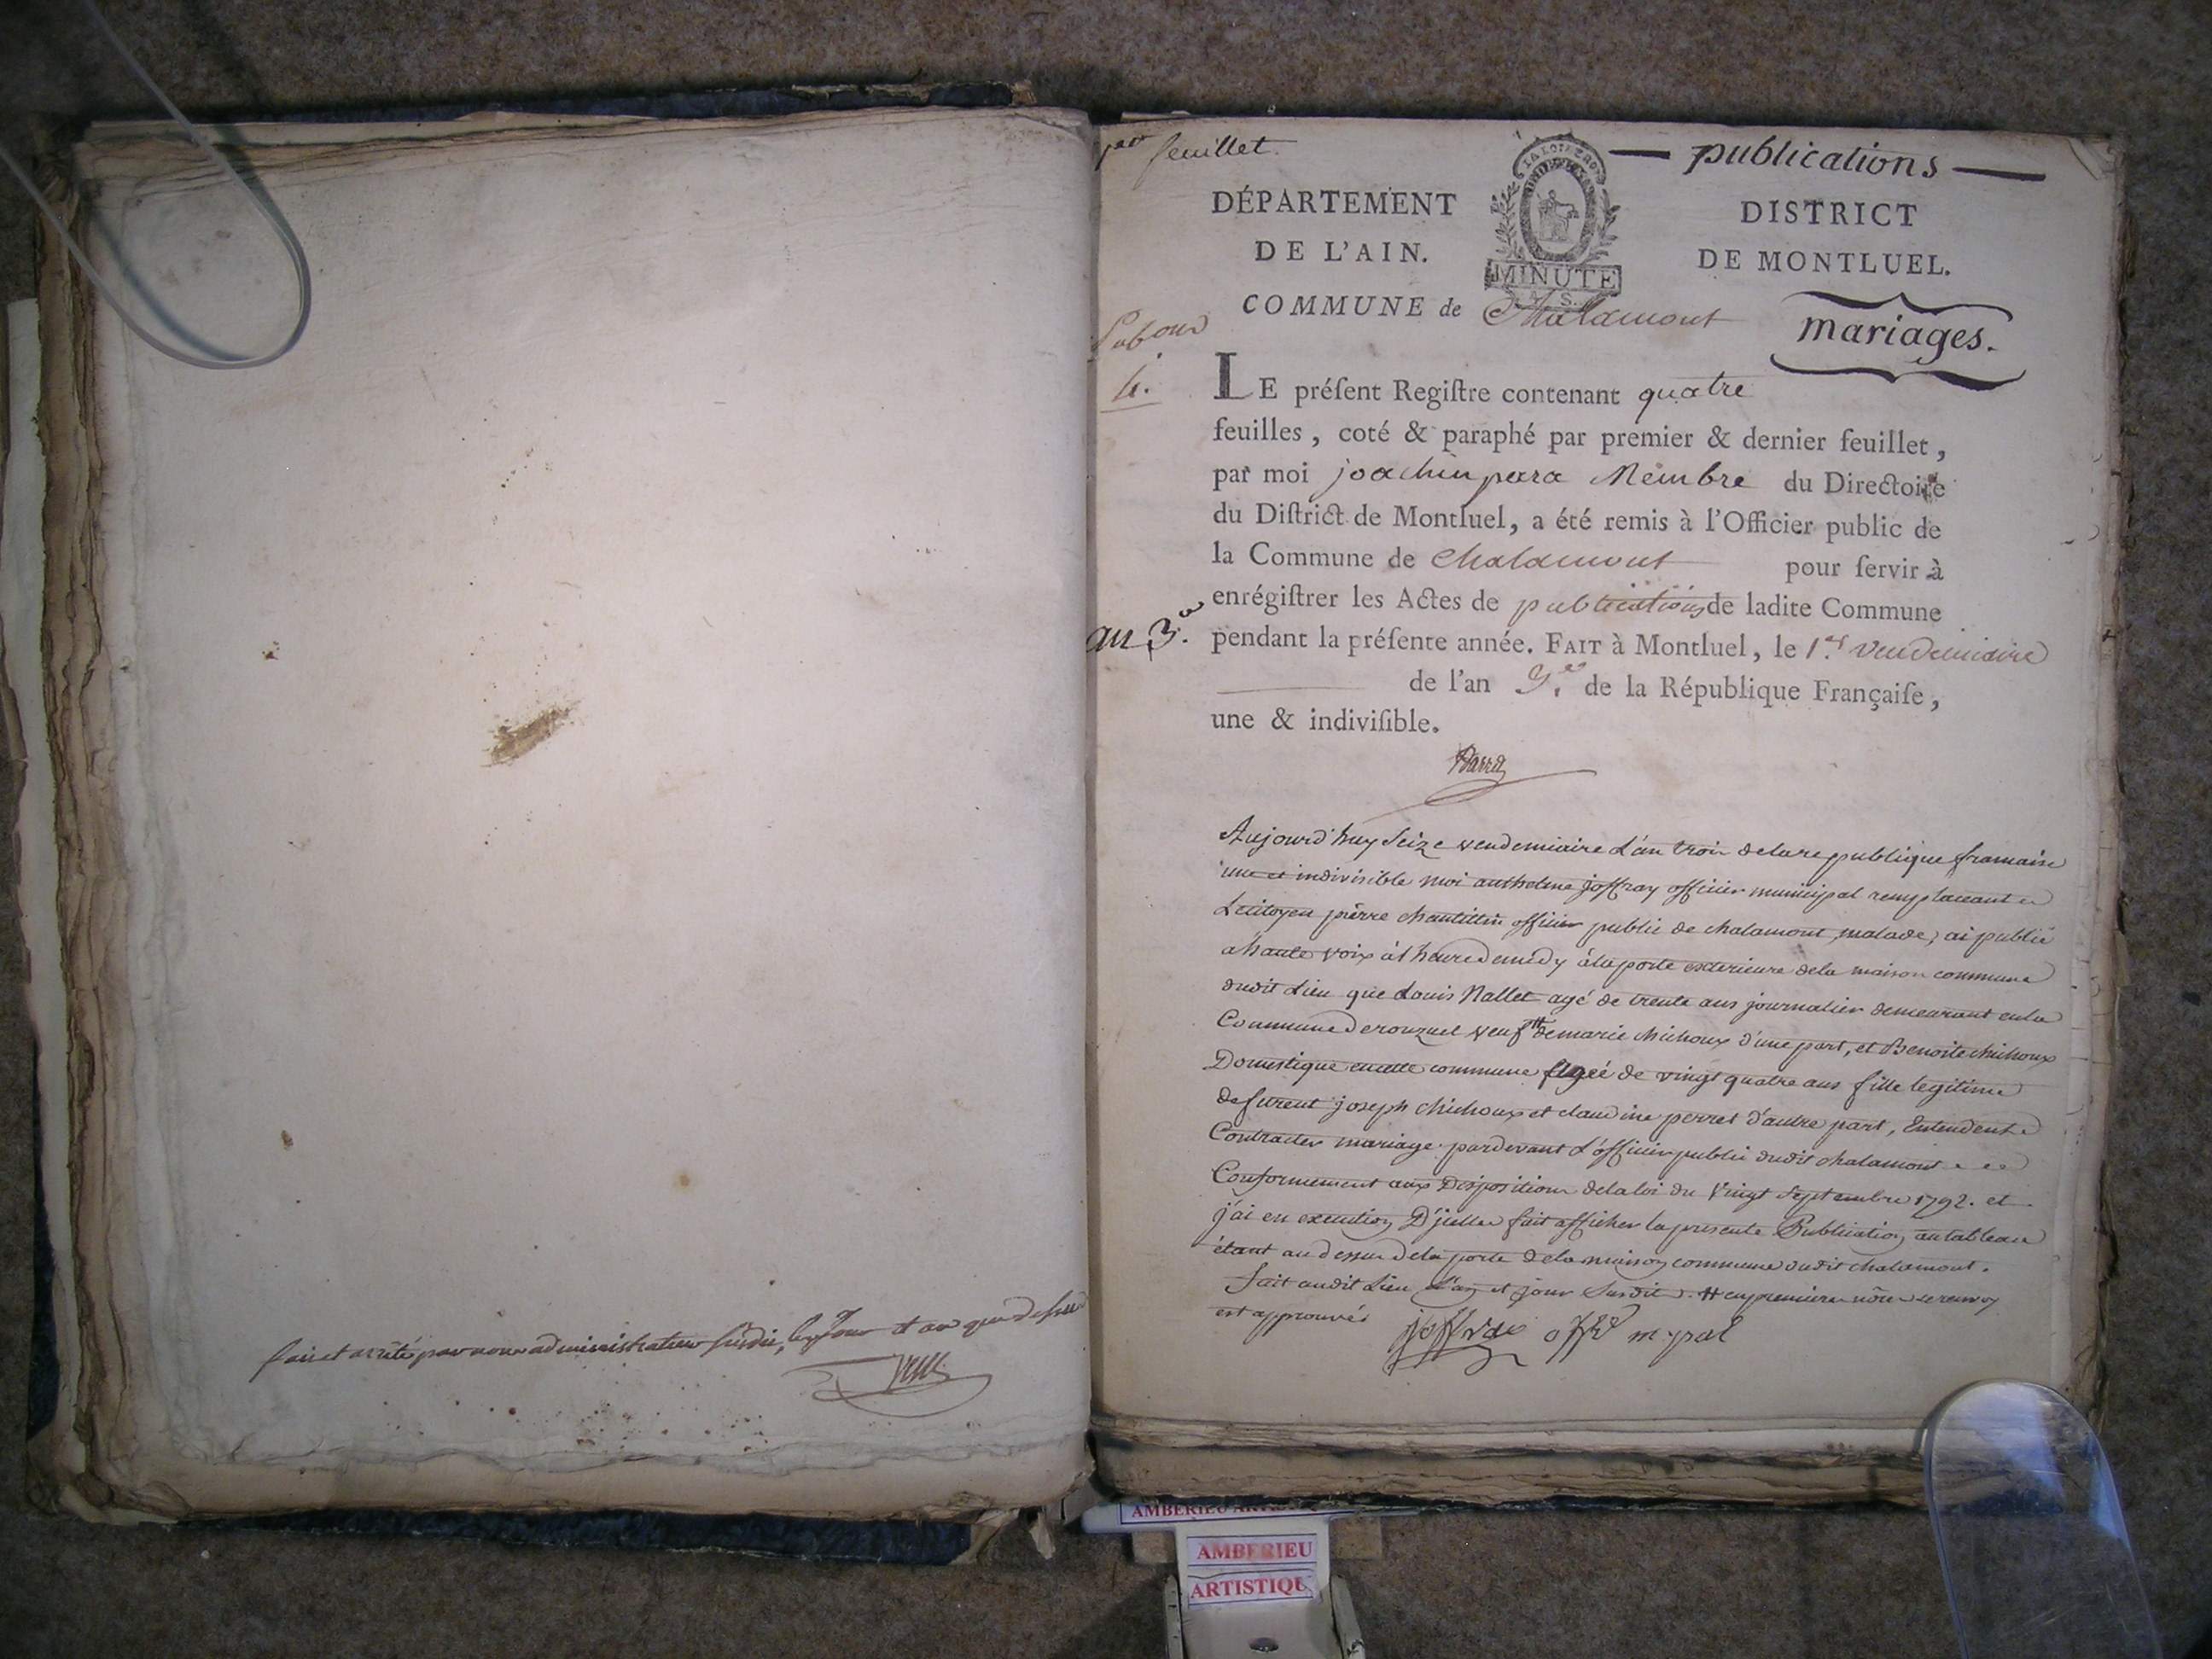 fait et arrêté par nous administrateur susdit, les Jour et an que dessus
1er feuillet
— publications —
DÉPARTEMENT
DE L'AIN.
MINUTE
DISTRICT
DE MONTLUEL.
COMMUNE de Chalamont
mariages.
4.
LE préſent Regiſtre contenant quatre
feuilles, coté & paraphé par premier & dernier feuillet,
par moi joachin para Membre du Directoire
du Diſtrict de Montluel, a été remis à l'Officier public de
la Commune de Chalamont pour ſervir à
enrégiſtrer les Actes de publications de ladite Commune
an 3.e
pendant la préſente année. FAIT à Montluel, le 1.er vendemiaire
de l'an 3.e de la République Françaiſe,
une & indiviſible.
Aujourd'huy Seize vendemiaire l'an trois de la republique francaise
une et indivisible moi anthelme joffray officier municipal remplaceant
Le citoyen pierre chantillin officier public de chalamont, malade, ai publié
a haute voix à l'heure de midy à la porte exterieure de la maison commune
dudit Lieu que Louis Nallet agé de trente ans journalier demeurant en la
Commune de rouzuel veuf # de marie chichoux d'une part, et Benoite chichoux
Domestique en cette commune agéé de vingt quatre ans fille legitime
de furent joseph chichoux et claudine perret d'autre part, Entendent
Contracter mariage pardevant L'officier public dudit chalamont
Conformement aux Dispositions de la loi du Vingt Septembre 1792. et
j'ai en execution D'jcelle fait afficher la presente Publication au tableau
étant au dessus de la porte de la maison commune dudit chalamont.
fait audit Lieu L'an et jour Susdit. # en premiere nôce ce renvoy
est approuvé
joffray offer mpal
AMBERIEU ARTIS
AMBERIEU
ARTISTIQU